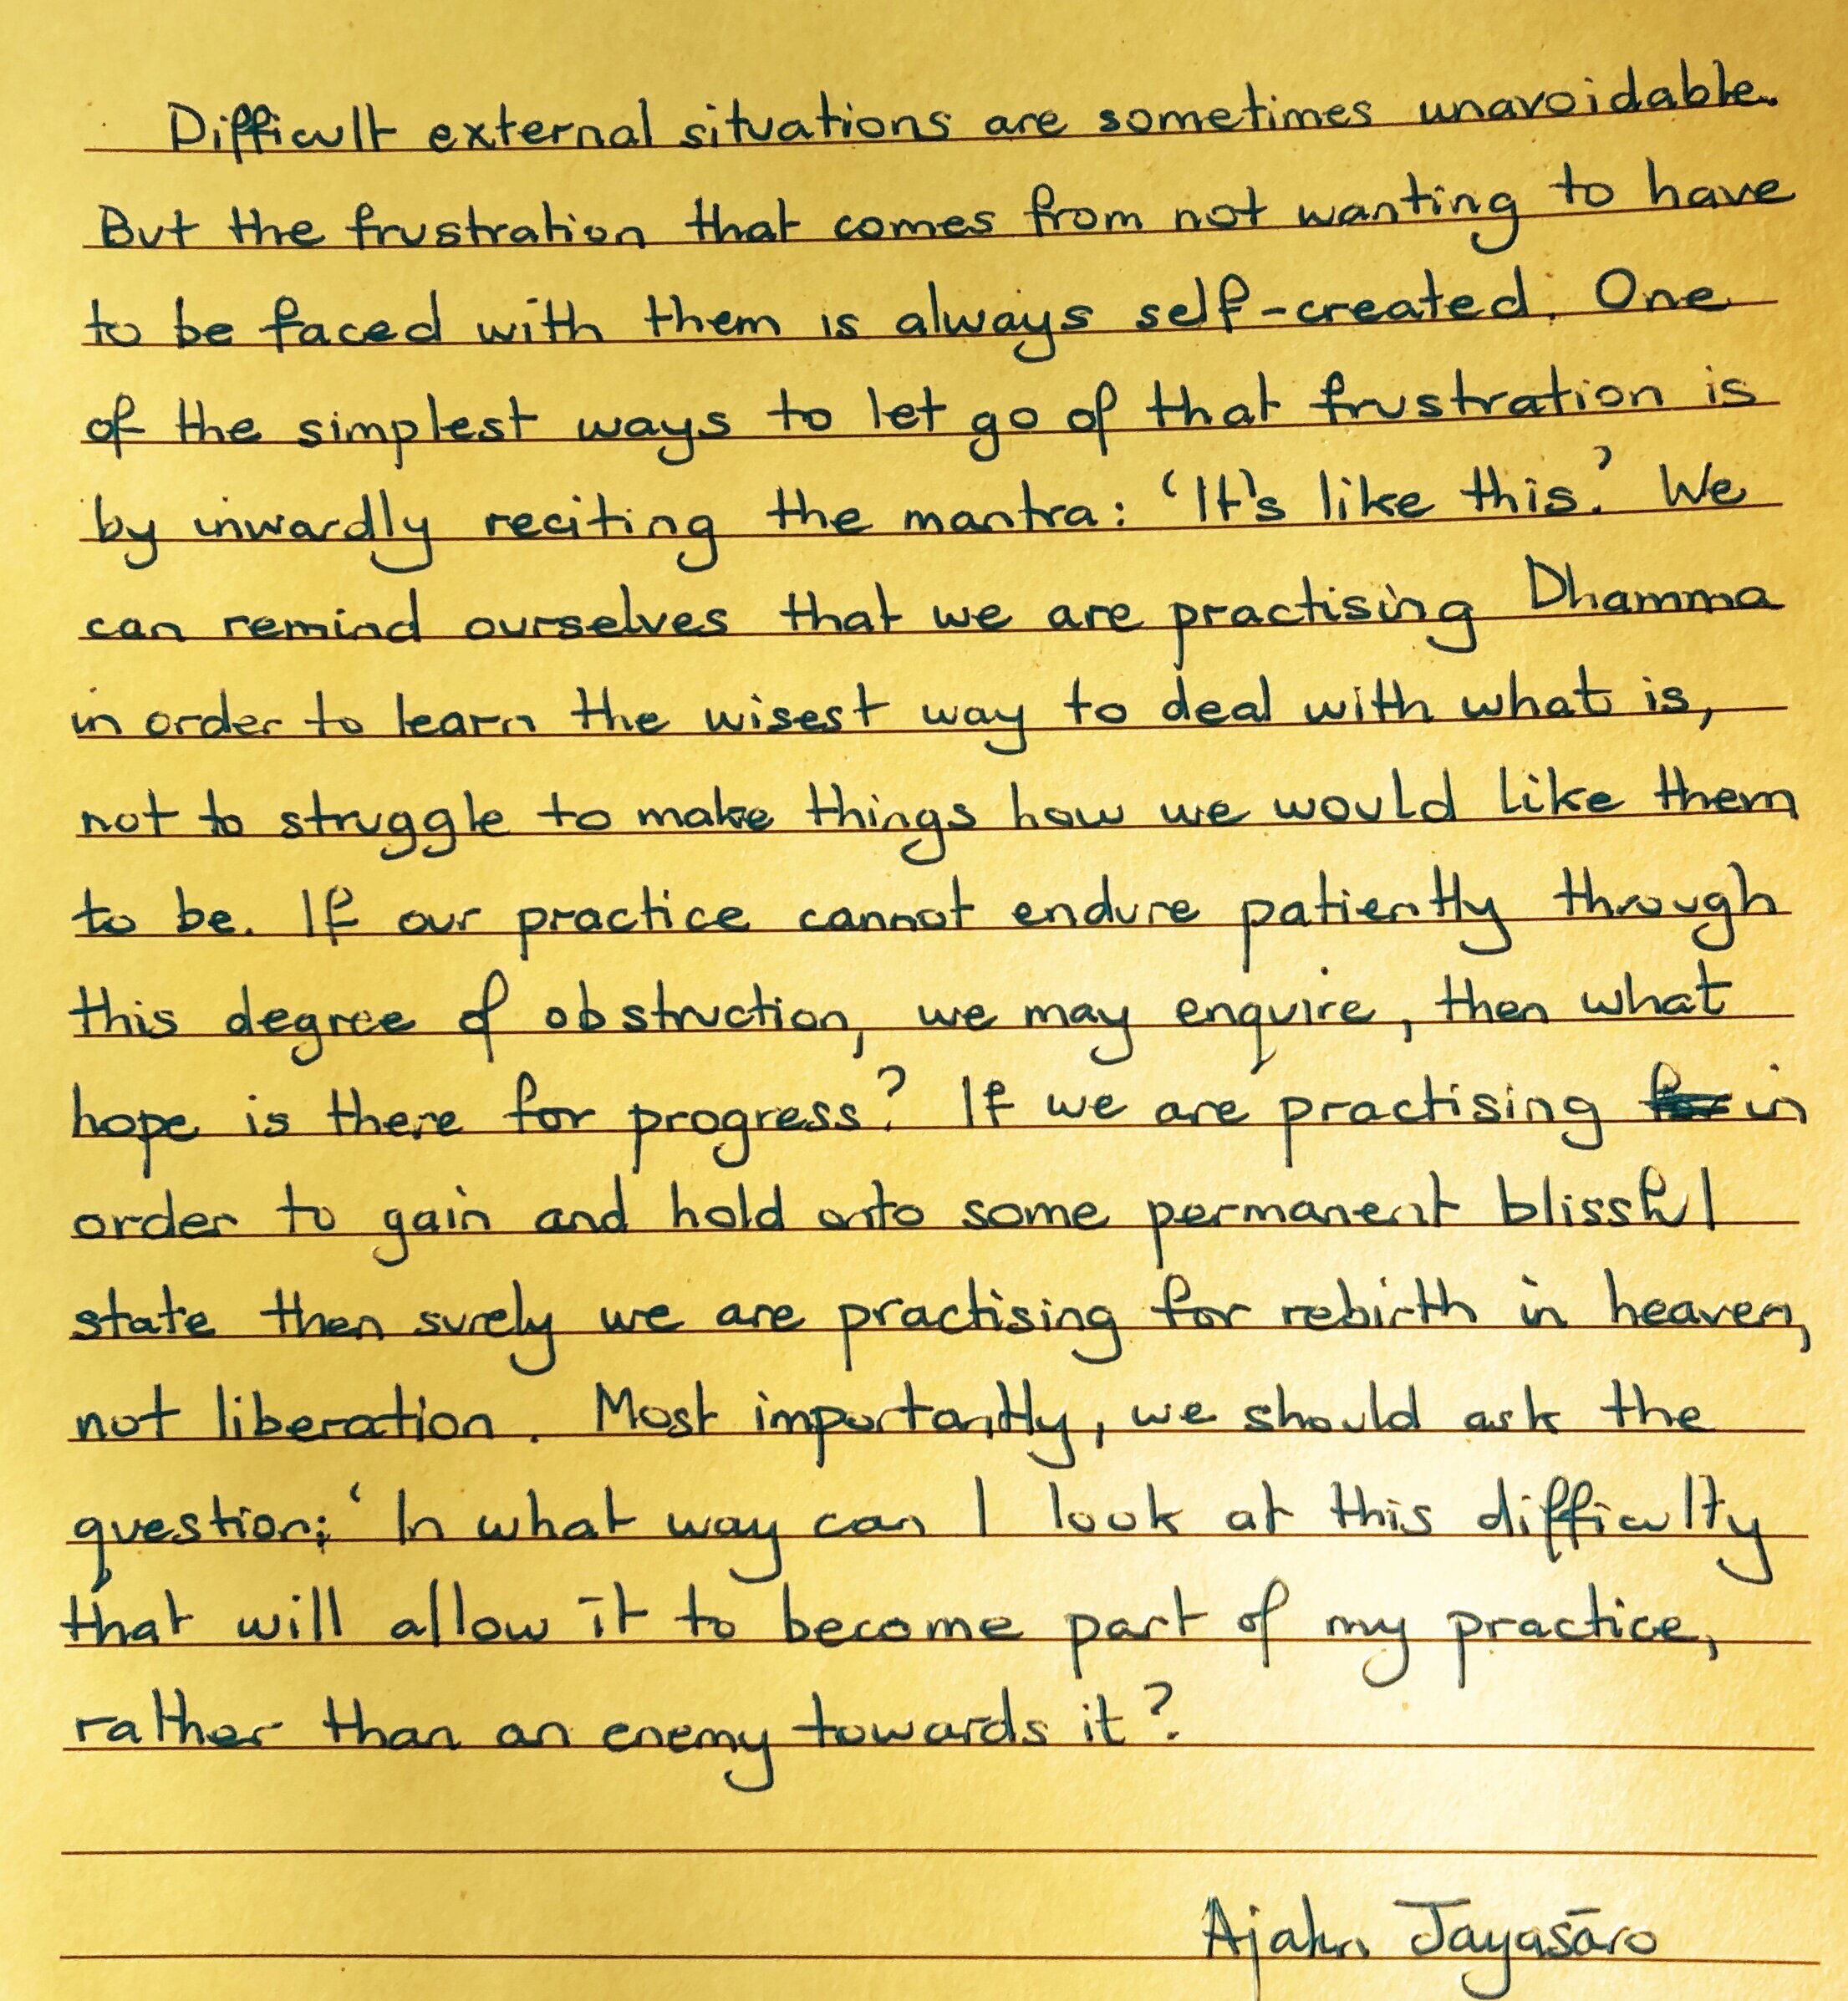 Difficult external situations are sometimes unavoidable.
But the frustration that comes from not wanting to have
to be faced with them is always self-created. One
of the simplest ways to let go of that frustration is
by inwardly reciting the mantra: ‘It's like this.’ We
can remind ourselves that we are practising Dhamma
in order to learn the wisest way to deal with what is,
not to struggle to make things how we would like them
to be. If our practice cannot endure patiently through
this degree of obstruction, we may enquire, then what
hope is there for progress? If we are practising in
order to gain and hold onto some permanent blissful
state then surely we are practising for rebirth in heaven,
not liberation. Most importantly, we should ask the
question; ‘In what way can I look at this difficulty
that will allow it to become part of my practice,
rather than an enemy towards it?
Ajahn Jayasāro